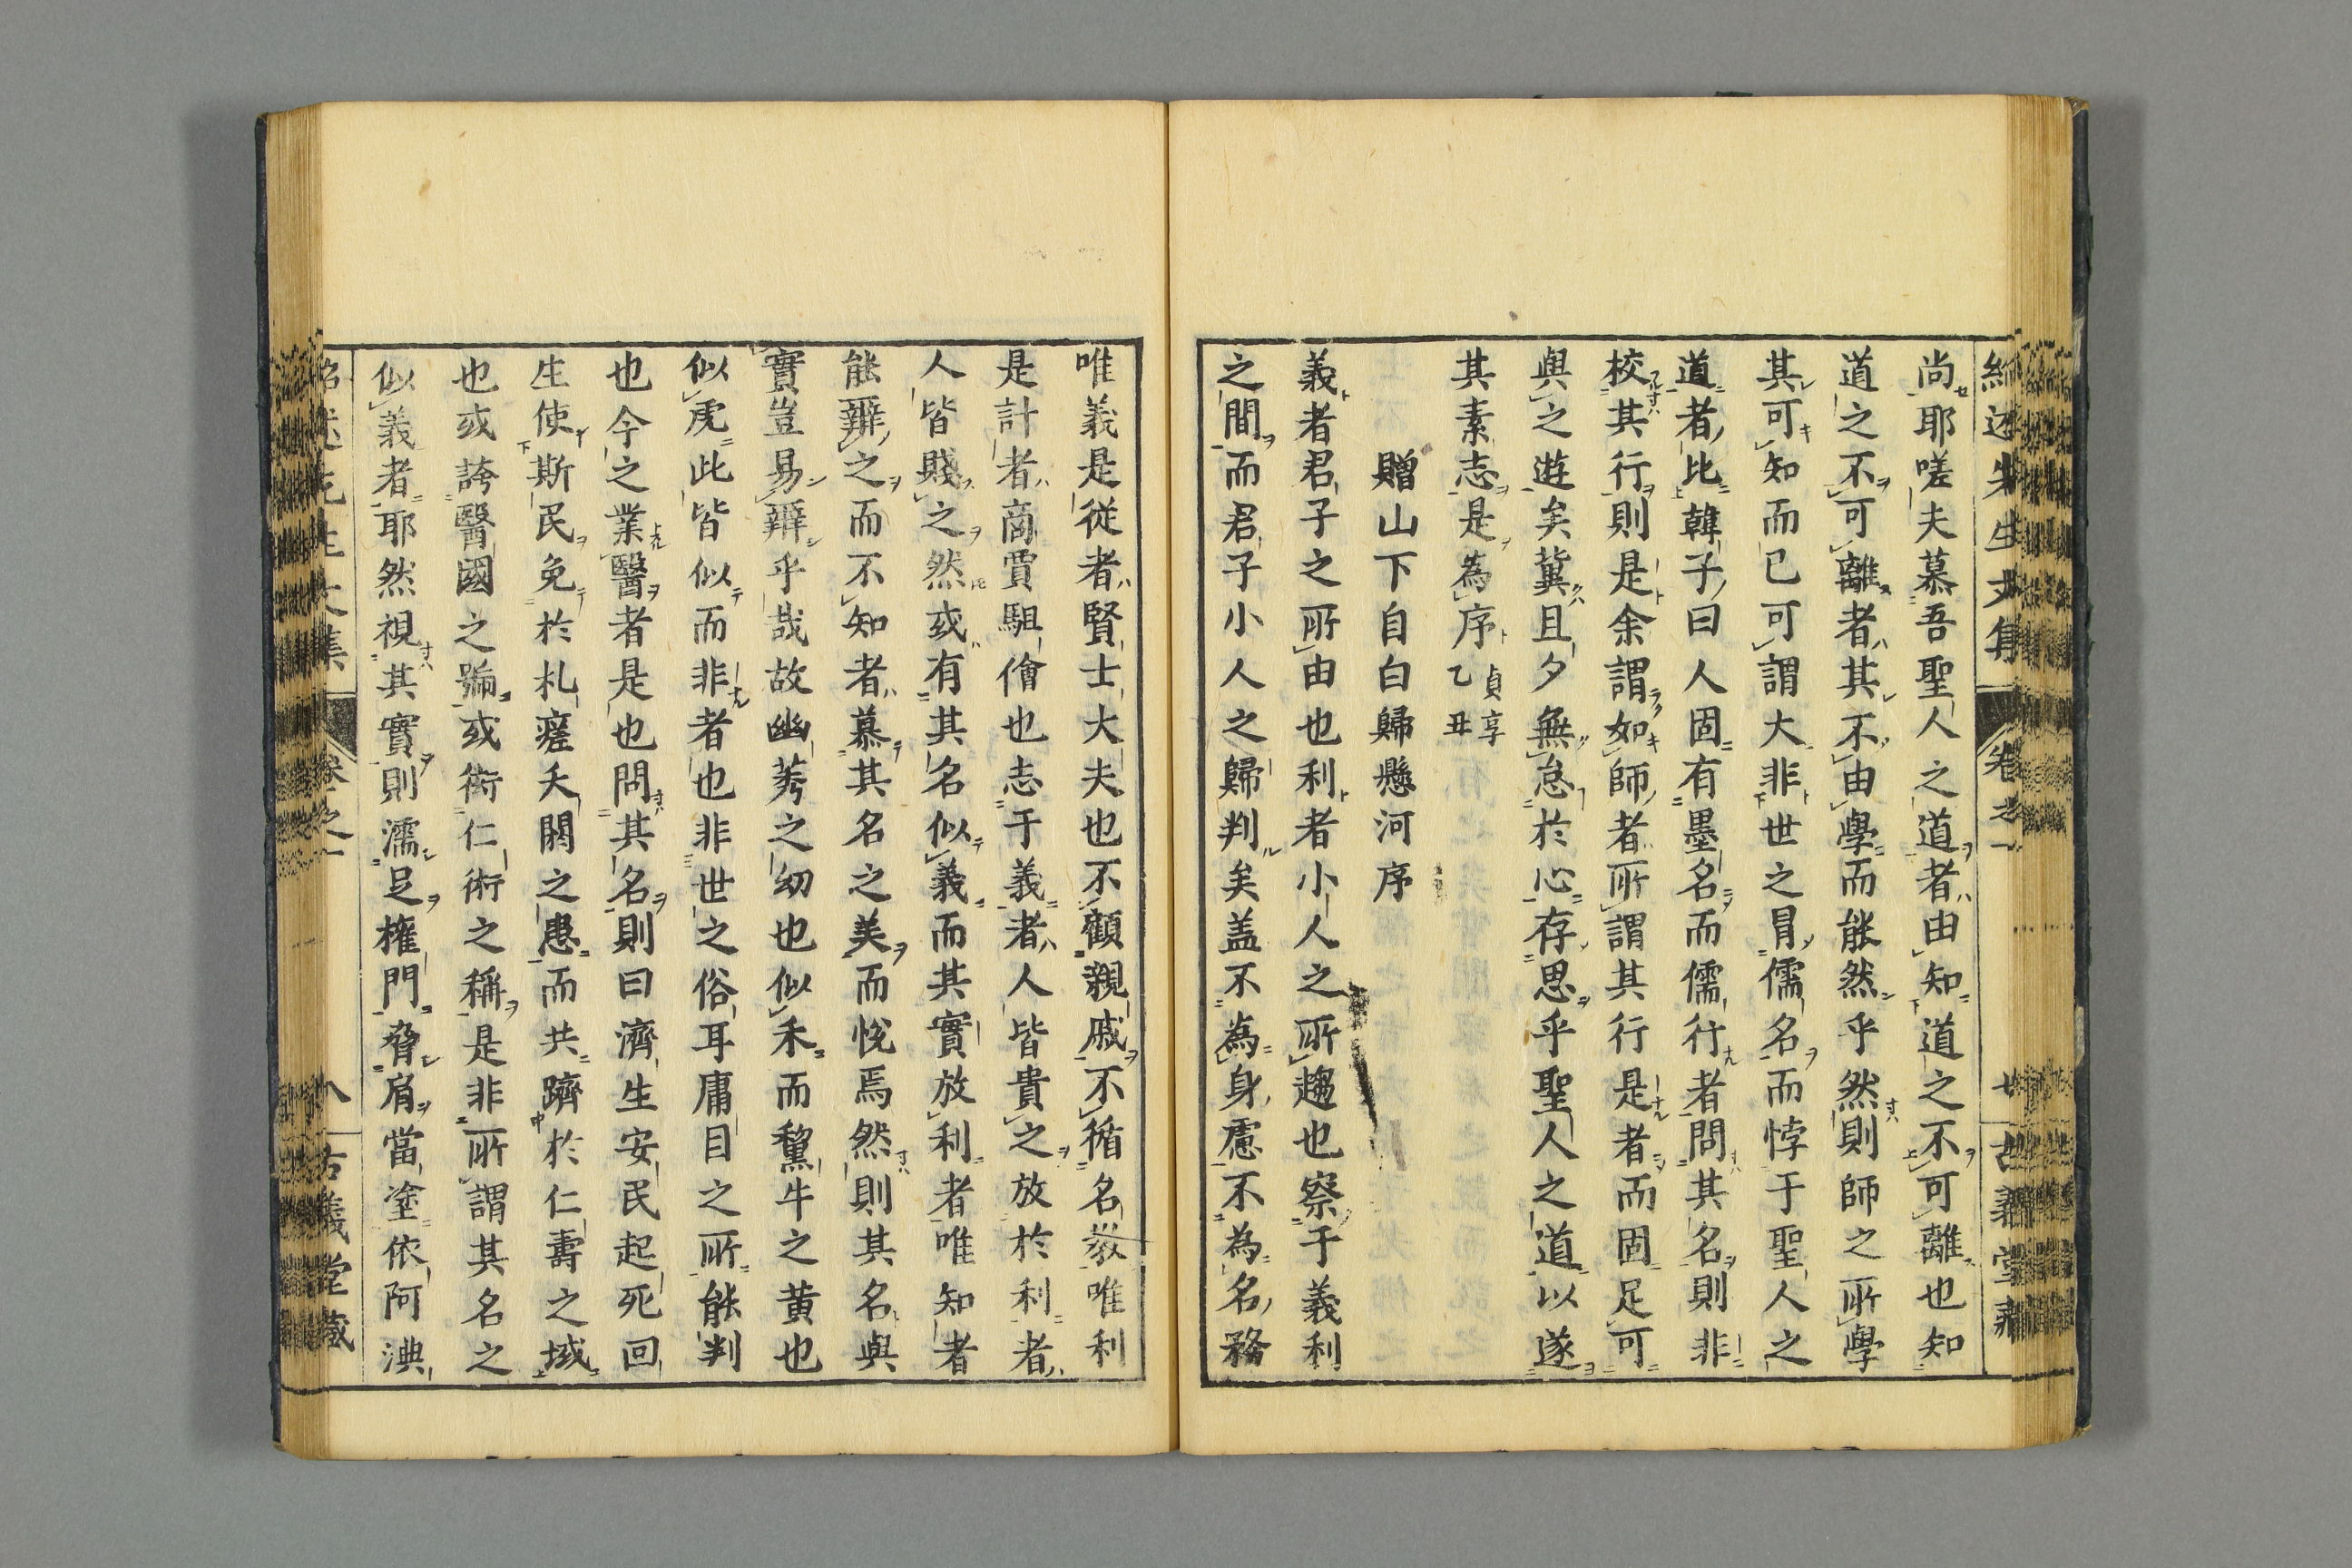 紹述先生文集 卷之一 古義堂藏
尚耶嗟夫慕吾聖人之道者由知道之不可離也知
道之不可離者其不由學而能然乎然則師之所學
其可知而已可謂大非世之冒儒名而悖于聖人之
道者比韓子曰人固有墨名而儒行者問其名則非
校其行則是余謂如師者所謂其行是者而固足可
與之遊矣冀且夕無怠於心存思乎聖人之道以遂
其素志是為序貞享乙丑
贈山下自白歸懸河序
義者君子之所由也利者小人之所趨也察于義利
之間而君子小人之歸判矣盖不為身慮不為名務
唯義是從者賢士大夫也不顧親戚不循名教唯利
是計者商賈駔儈也志于義者人皆貴之放於利者
人皆賤之然或有其名似義而其實放利者唯知者
能辨之而不知者慕其名之美而悅焉然則其名與
實豈易辨乎哉故幽莠之幼也似禾而黧牛之黃也
似虎此皆似而非者也非世之俗耳庸目之所能判
也今之業醫者是也問其名則曰濟生安民起死回
生使斯民免於札瘥夭閼之患而共躋於仁壽之域
也或誇醫國之號或衒仁術之稱是非所謂其名之
似義者耶然視其實則濡足權門脅肩當塗依阿淟
紹述先生文集 卷之一 八 古義堂藏